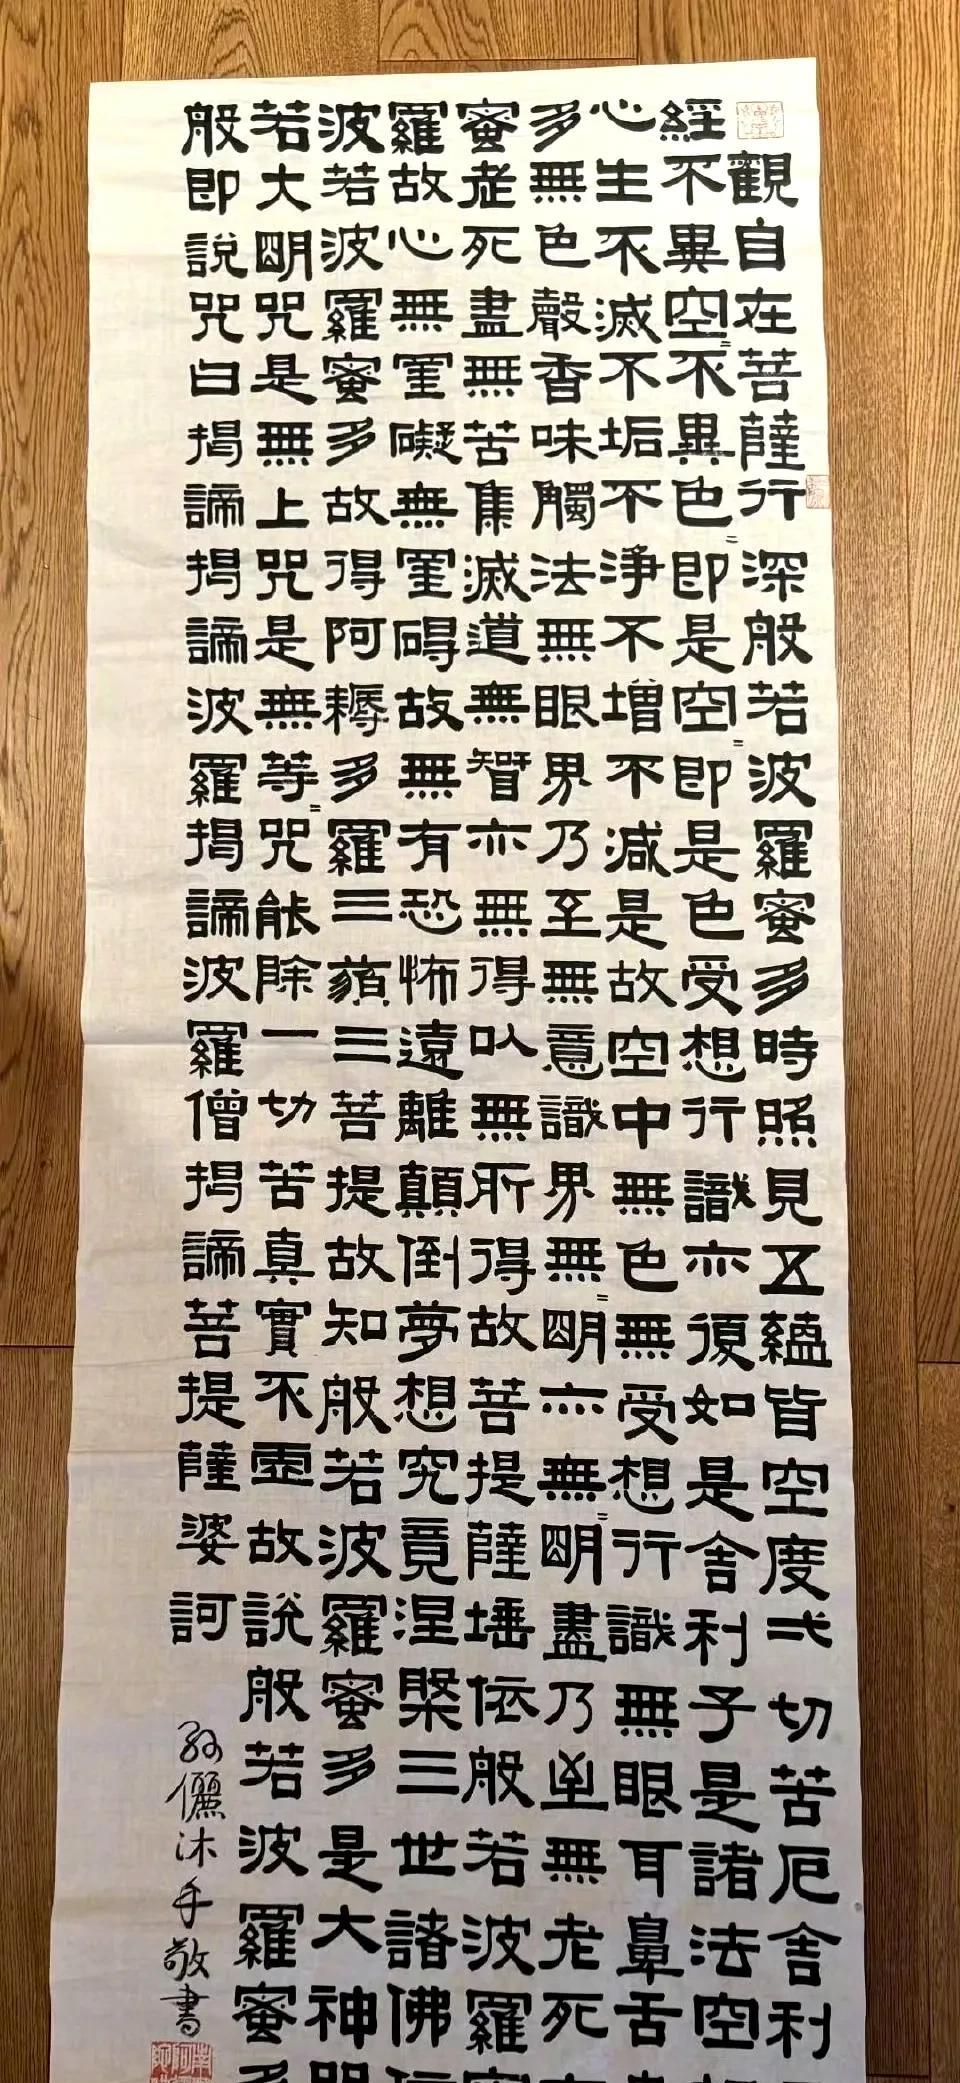 般若波羅蜜多心經
觀自在菩薩行深般若波羅蜜多時照見五蘊皆空度弌切苦厄舍利
不異空〻不異色〻即是空〻即是色受想行識亦復如是舍利子是諸法空
生不滅不垢不淨不增不減是故空中無色無受想行識無眼耳鼻舌
無色聲香味觸法無眼界乃至無意識界無〻明亦無〻明盡乃至無老死
老死盡無苦集滅道無智亦無得以無所得故菩提薩埵依般若波羅蜜
故心無罣礙無罣碍故無有恐怖遠離顛倒夢想究竟涅槃三世諸佛
若波羅蜜多故得阿耨多羅三藐三菩提故知般若波羅蜜多是大神咒
大明咒是無上咒是無等〻咒能除一切苦真實不虛故說般若波羅蜜多
即說咒曰揭諦揭諦波羅揭諦波羅僧揭諦菩提薩婆訶
孫儷沐手敬書